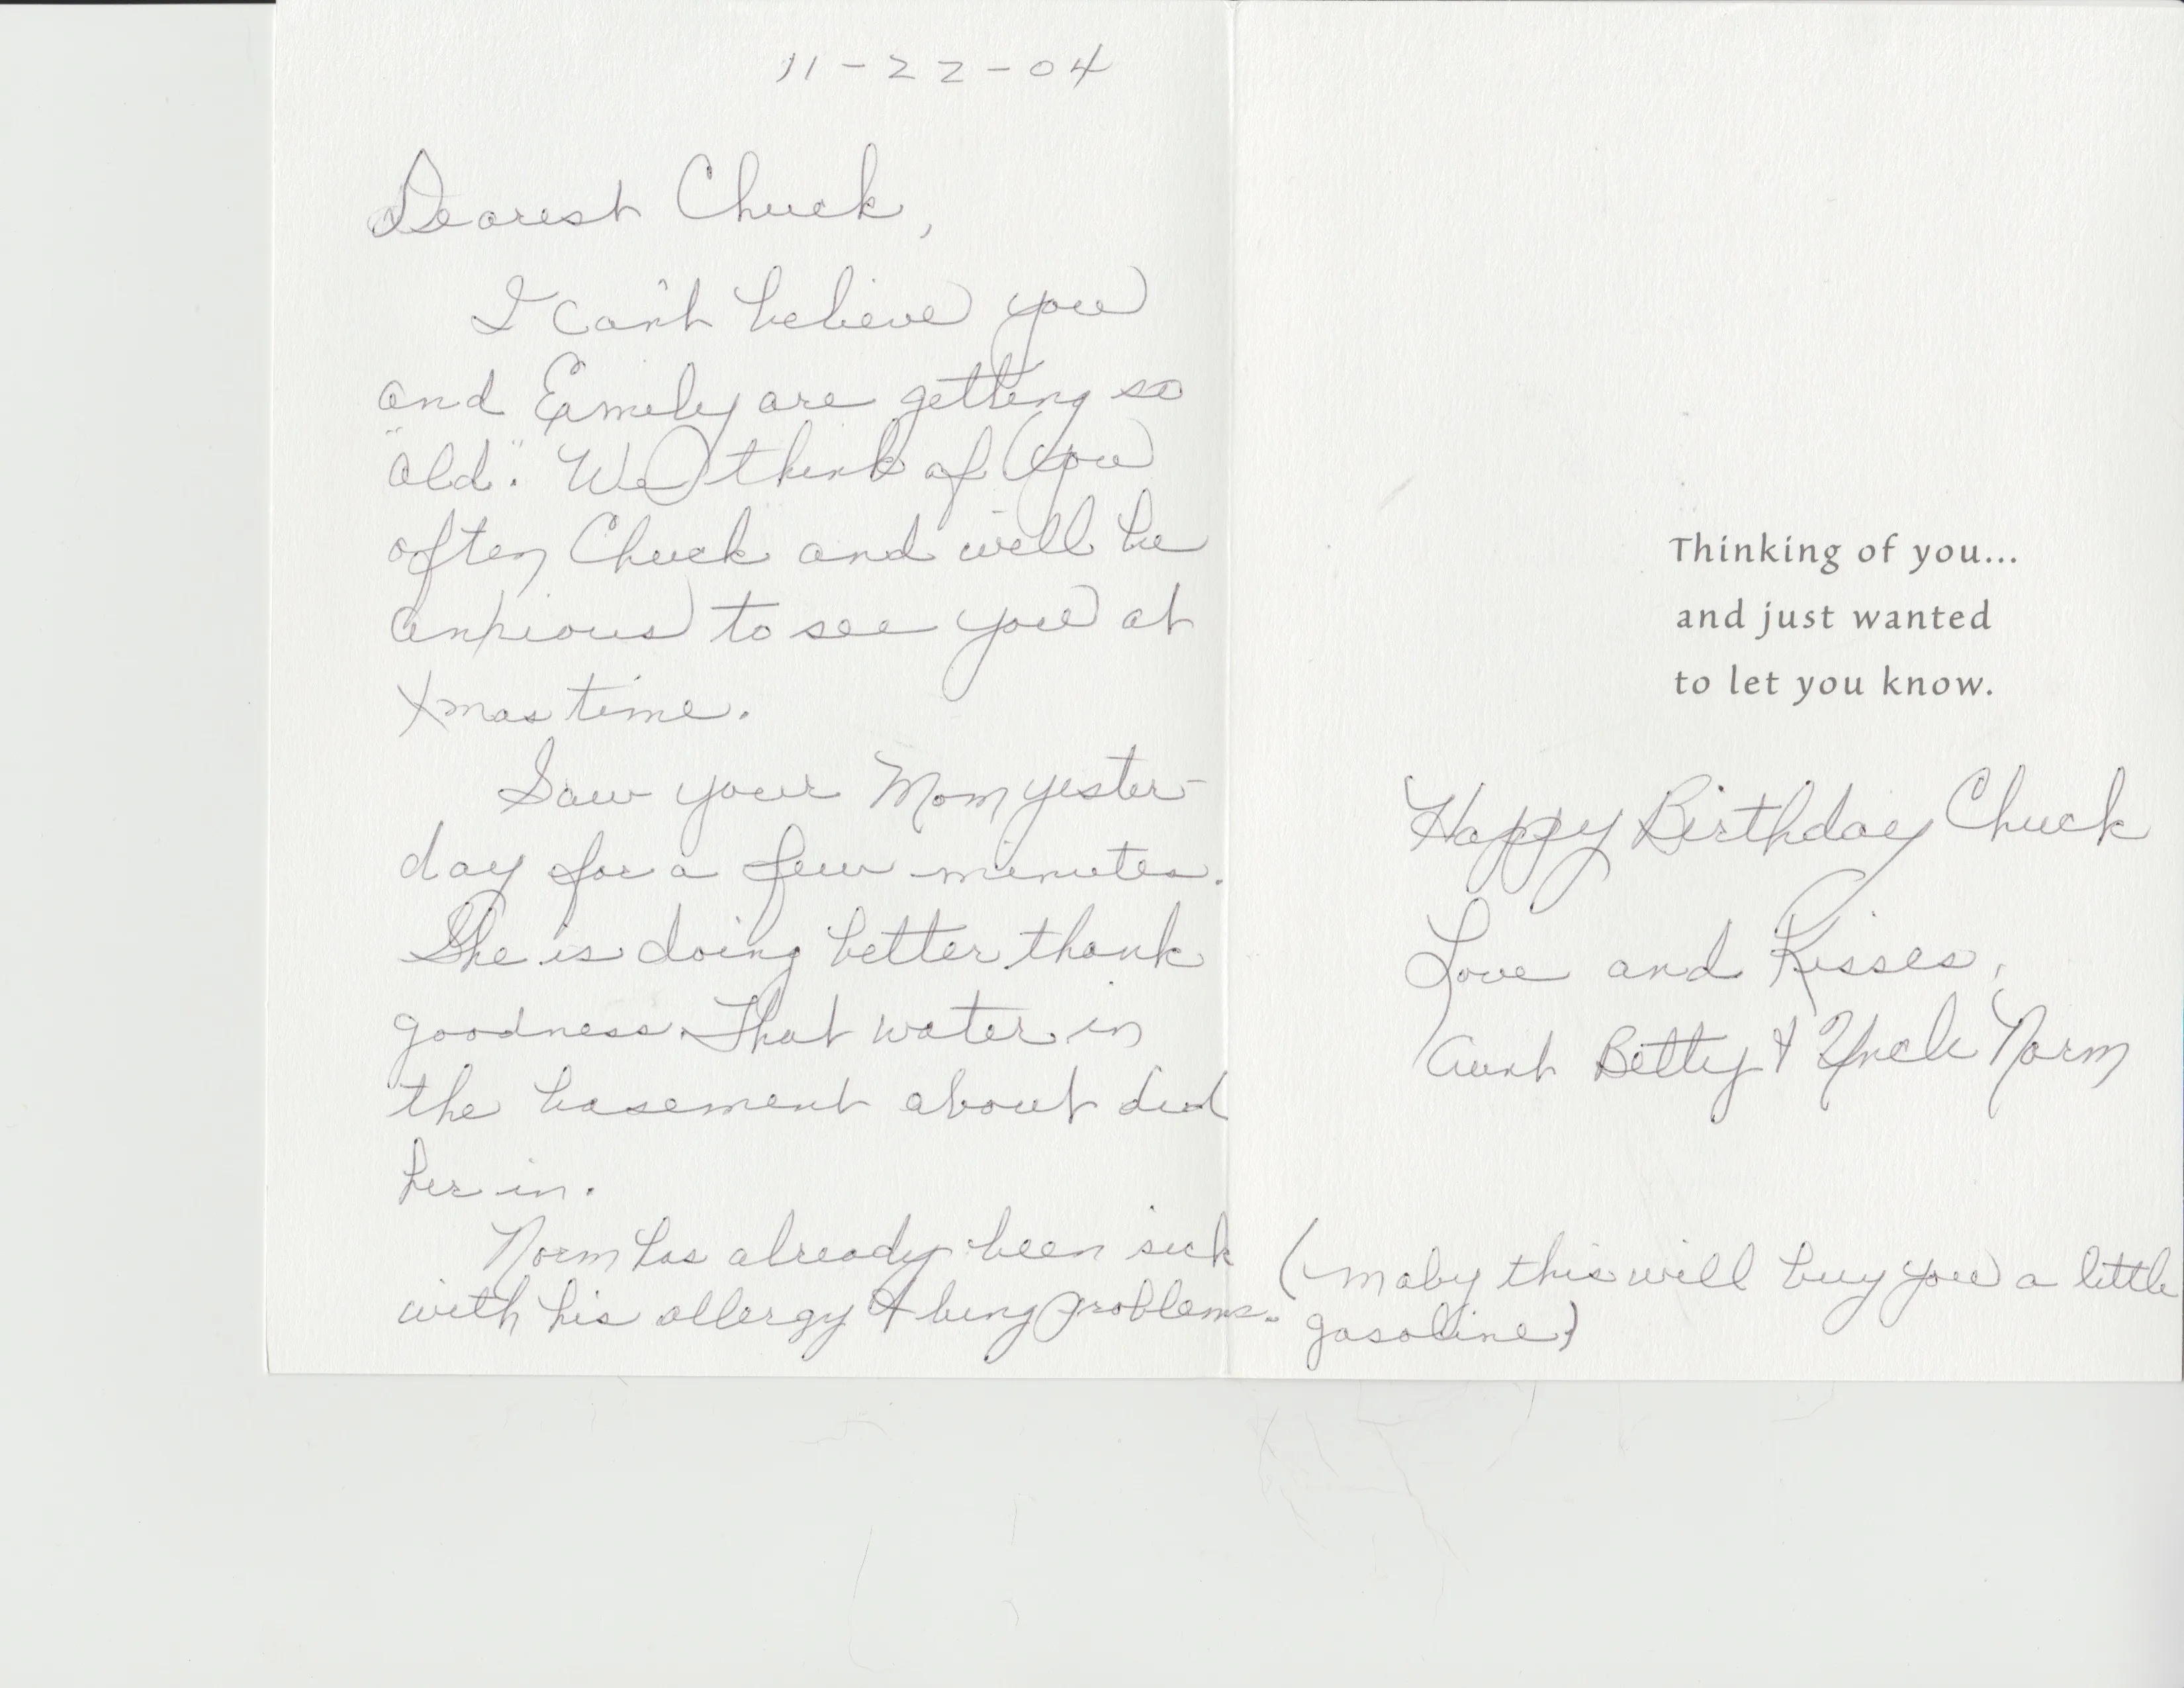 11-22-04
Dearest Chuck,
I can't believe you
and Emily are getting so
"old". We think of you
often Chuck and will be
anxious to see you at
Xmas time.
Saw your Mom yester-
day for a few minutes.
She is doing better thank
goodness. That water in
the basement about did
her in.
Norm has already been sick
with his allergy & lung problems.
Thinking of you...
and just wanted
to let you know.
Happy Birthday Chuck
Love and Kisses,
Aunt Betty & Uncle Norm
(maby this will buy you a little
gasoline)